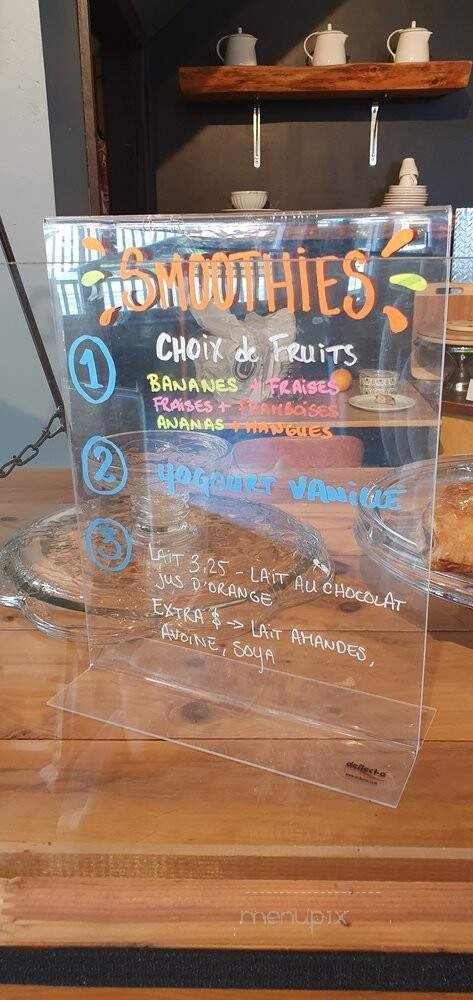 SMOOTHIES
1 CHOIX de FRUITS
BANANES + FRAISES
FRAISES + FRAMBOISES
ANANAS + MANGUES
2 YOGOURT VANILLE
3 LAIT 3,25 - LAIT AU CHOCOLAT
JUS D'ORANGE
EXTRA $ → LAIT AMANDES,
AVOINE, SOYA
deflect-o
menupix